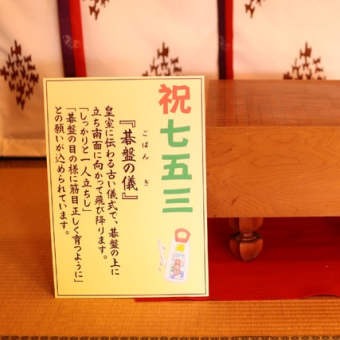 祝七五三
『碁盤の儀』
ごばん ぎ
皇室に伝わる古い儀式で、碁盤の上に
立ち南面に向かって飛び降ります。
「しっかりと一人立ちし」
「碁盤の目の様に筋目正しく育つように」
との願いが込められています。